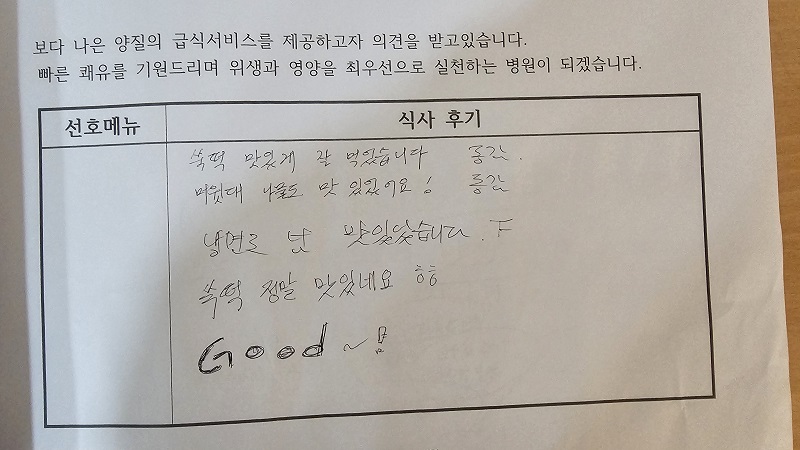 보다 나은 양질의 급식서비스를 제공하고자 의견을 받고있습니다.
빠른 쾌유를 기원드리며 위생과 영양을 최우선으로 실천하는 병원이 되겠습니다.
선호메뉴 식사 후기
쑥떡 맛있게 잘 먹었습니다
머윗대 나물도 맛 있었어요!
냉면로 맛있었습니다.
쑥떡 정말 맛있네요 ㅎㅎ
Good ~